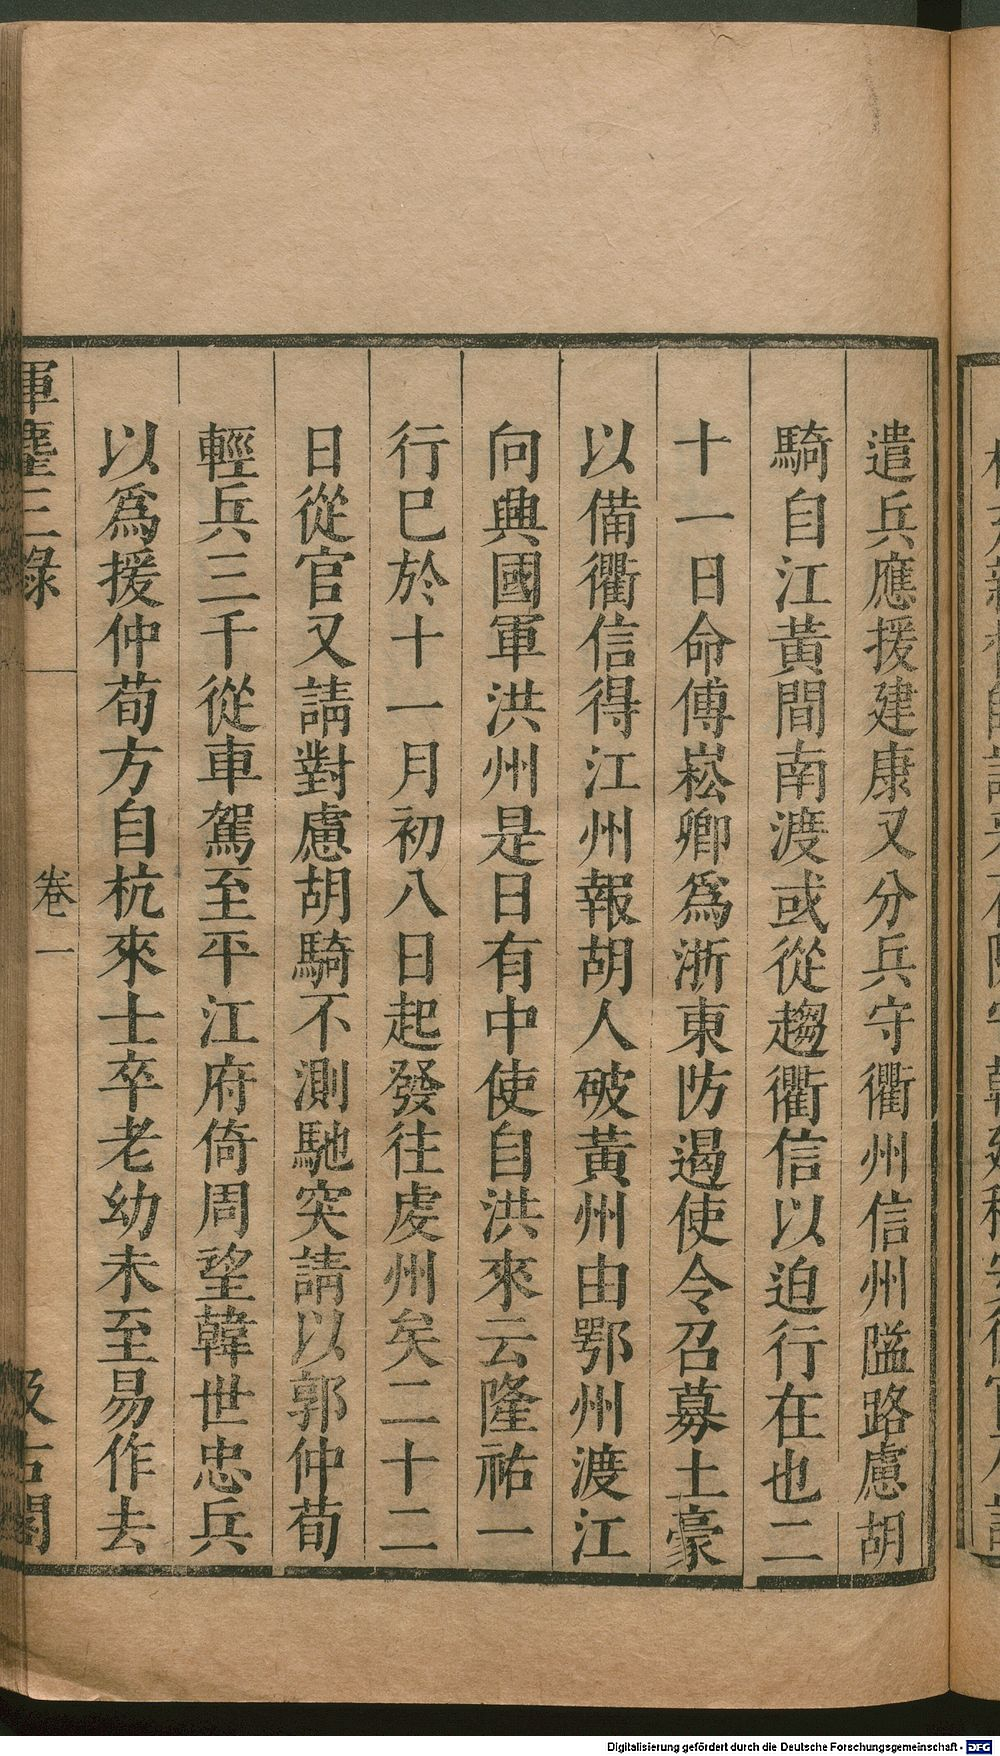 遣兵應援建康又分兵守衢州信州隘路慮胡
騎自江黃間南渡或從趨衢信以迫行在也二
十一日命傅崧卿爲浙東防遏使令召募土豪
以備衢信得江州報胡人破黃州由鄂州渡江
向興國軍洪州是日有中使自洪來云隆祐一
行巳於十一月初八日起發往虔州矣二十二
日從官又請對慮胡騎不測馳突請以郭仲荀
輕兵三千從車駕至平江府倚周望韓世忠兵
以爲援仲荀方自杭來士卒老幼未至易作去
揮麈三錄 卷一 汲古閣
Digitalisierung gefördert durch die Deutsche Forschungsgemeinschaft - DFG